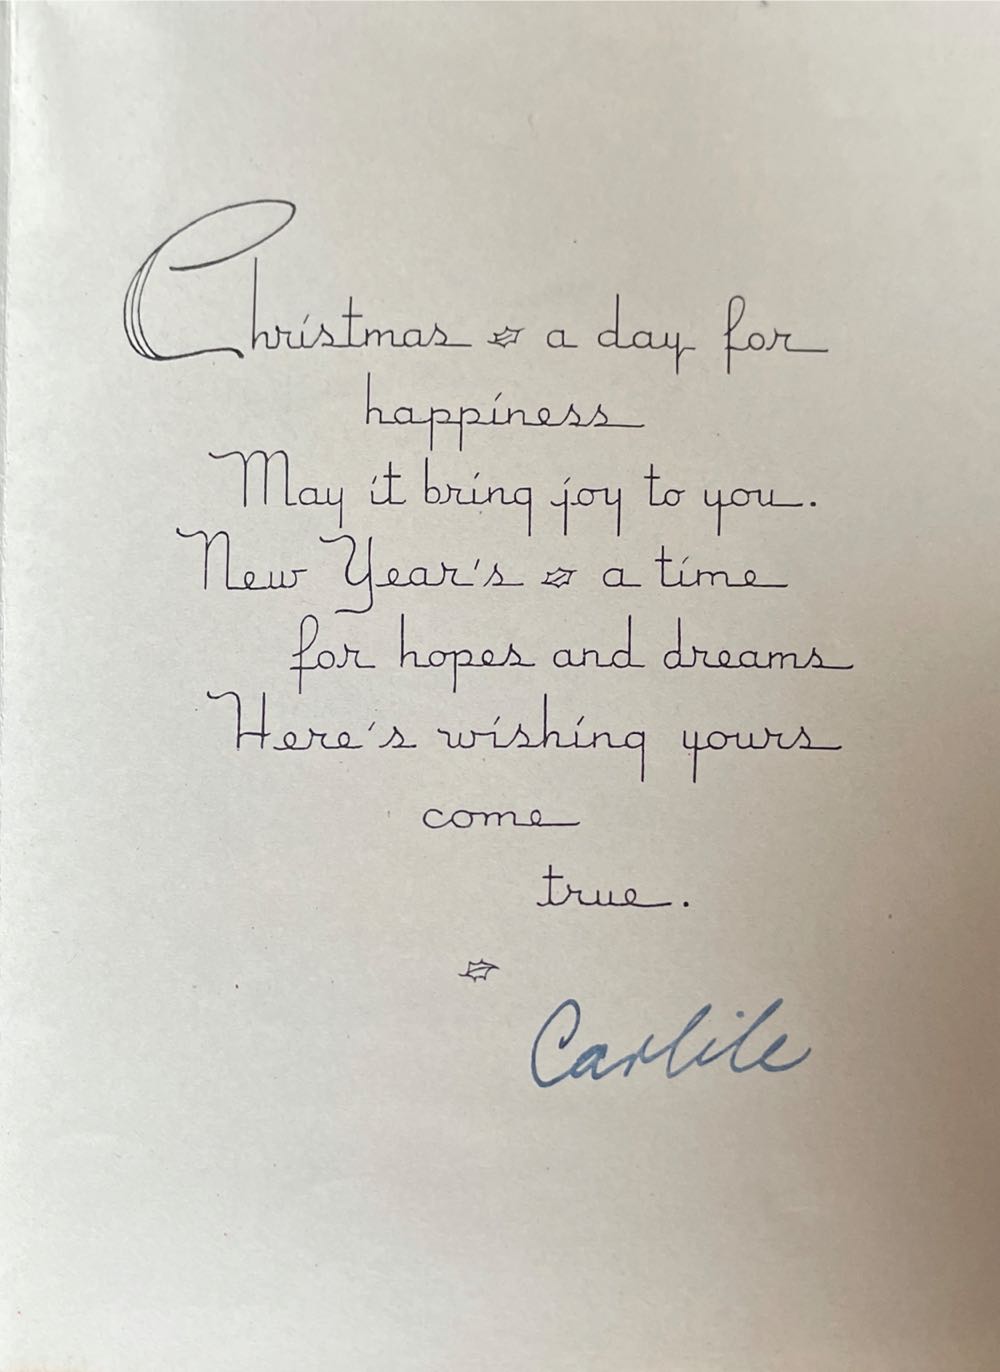 Christmas a day for
happiness
May it bring joy to you.
New Year's a time
for hopes and dreams
Here's wishing yours
come
true.
Carlile